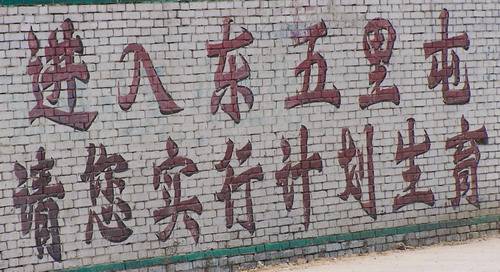 进入东五里屯
请您实行计划生育